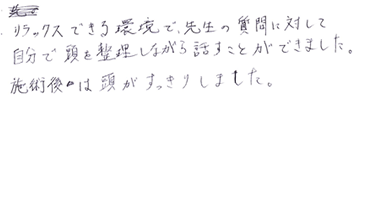 リラックスできる環境で、先生の質問に対して
自分で頭を整理しながら話すことができました。
施術後は頭がすっきりしました。